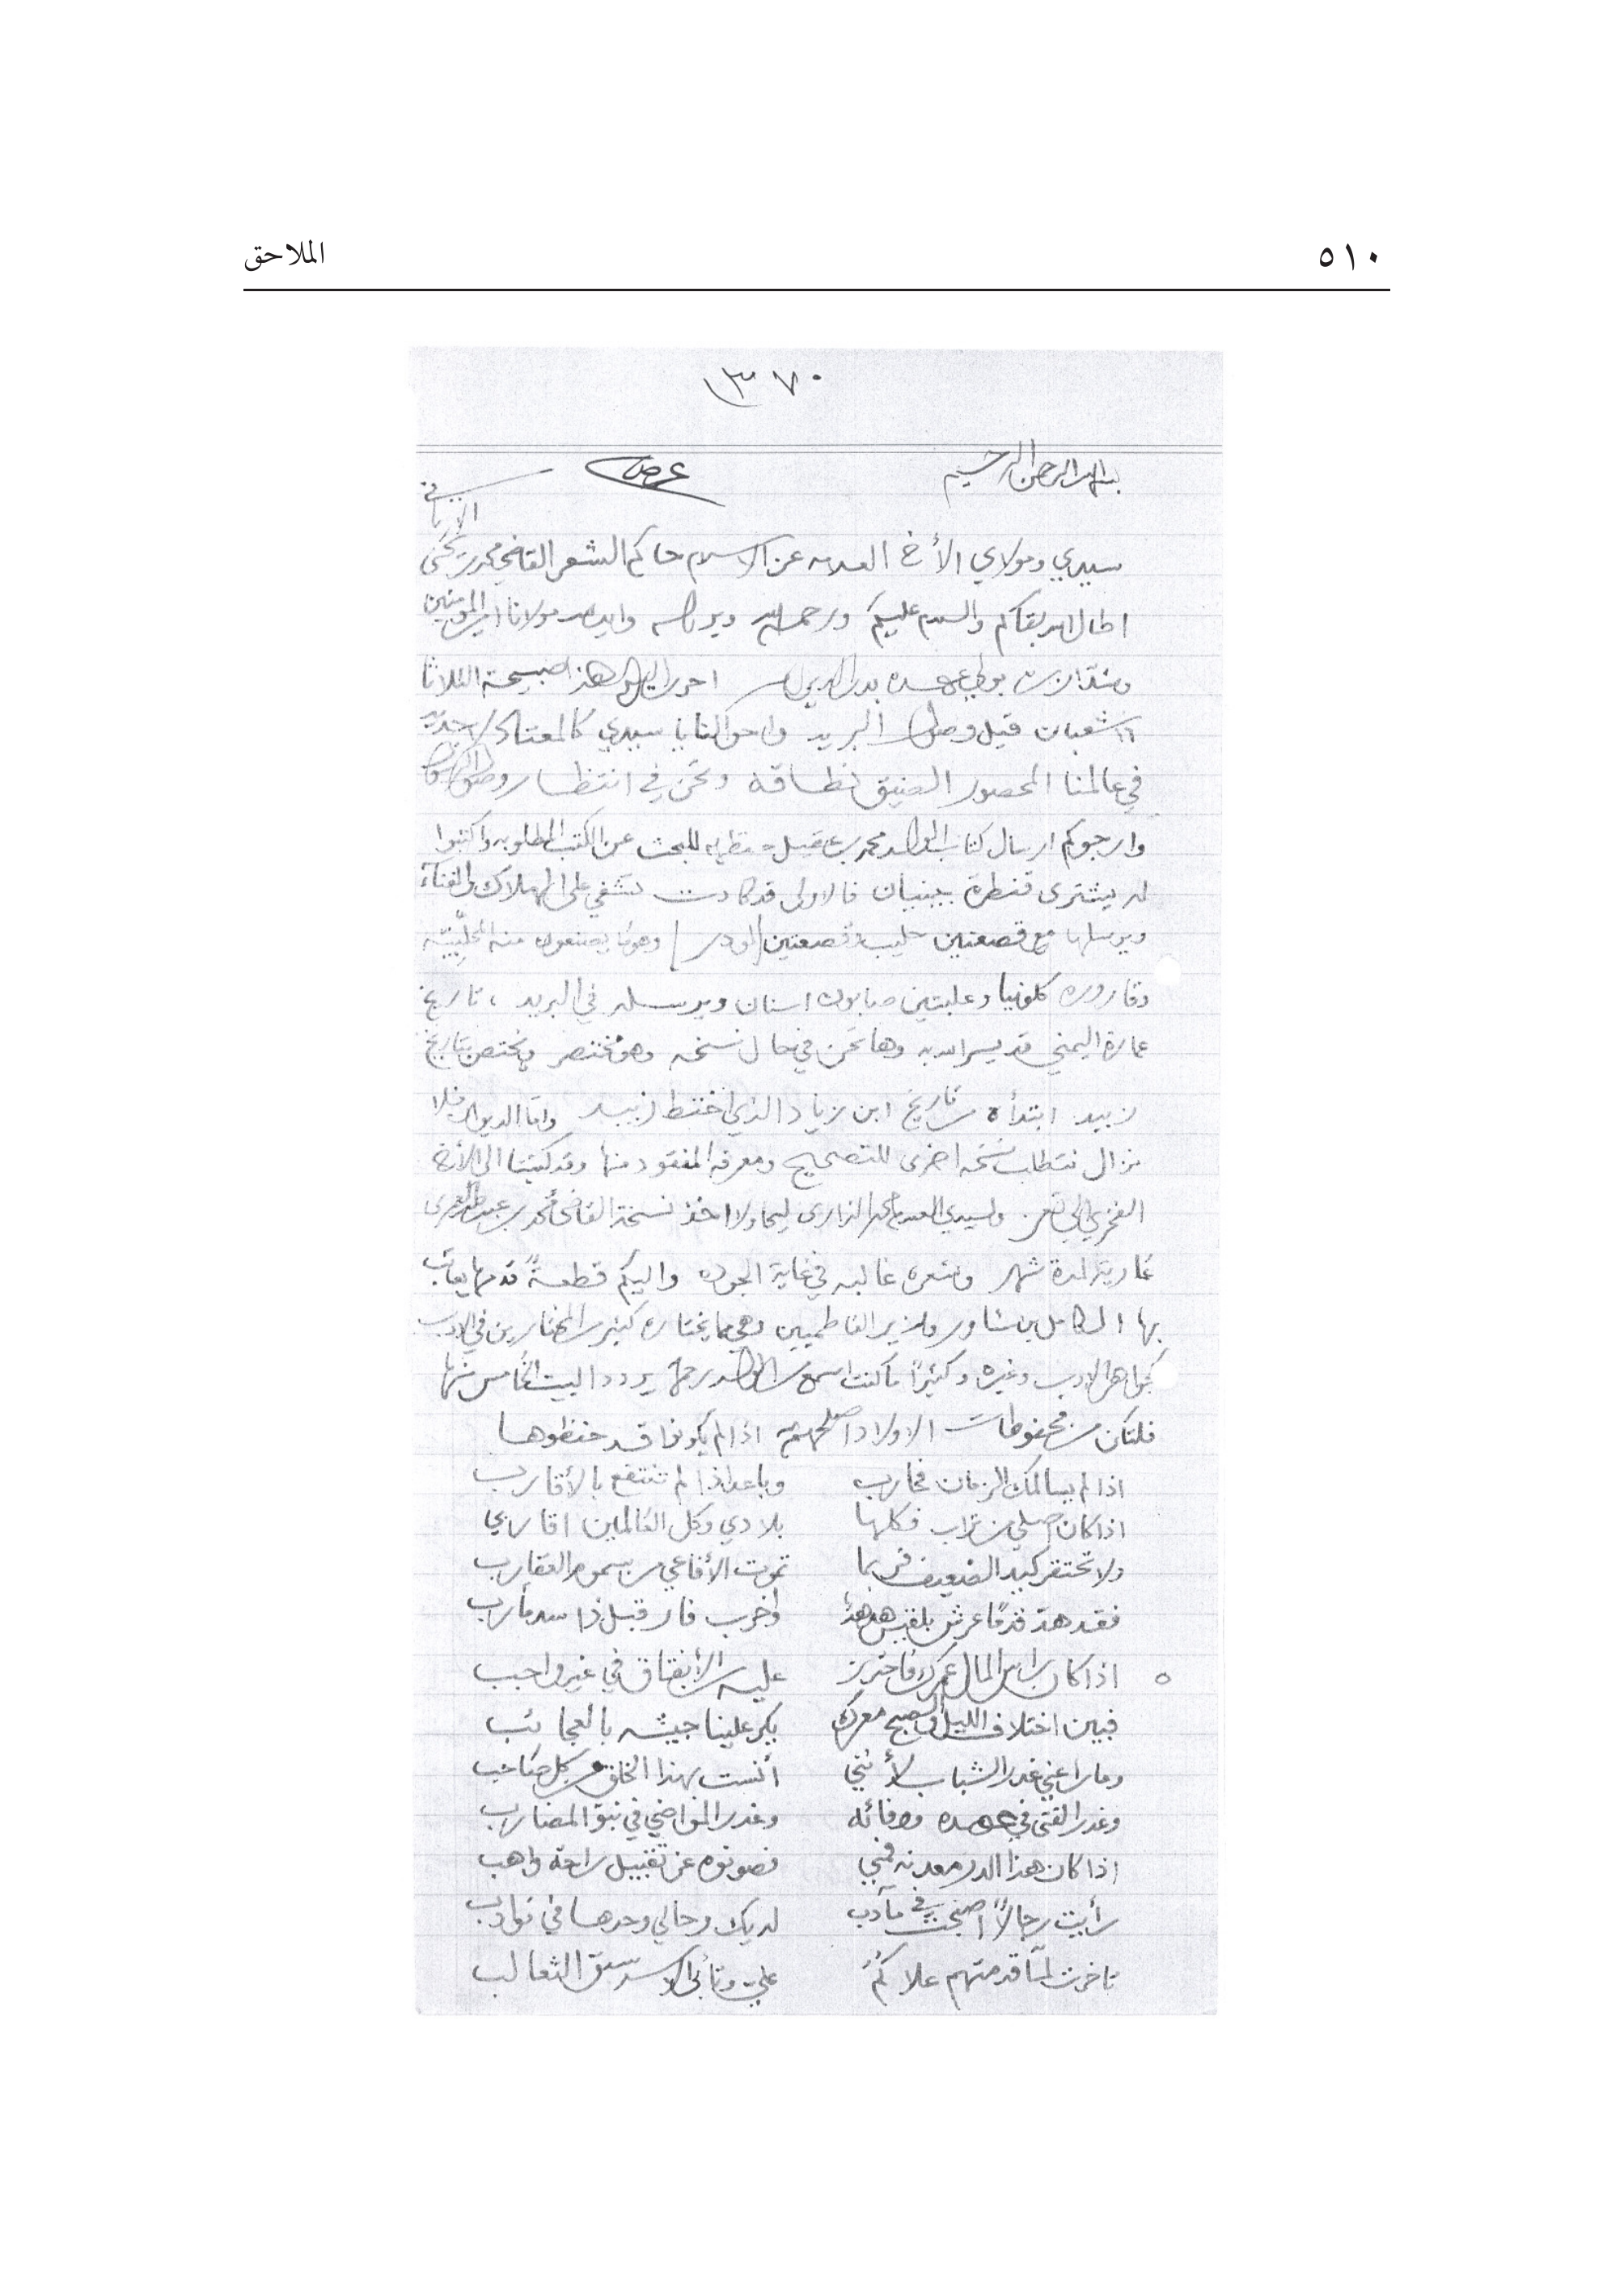 ٥١٠
الملاحق
١٣٧٠
بسم الله الرحمن الرحيم
سيدي ومولاي الأخ العلامه عز الاسلام حاكم الشعر القاضي محمد بن يحيى الارياني
اطال الله بقاكم والسلام عليكم ورحمة الله وبركاته وايد الله مولانا امير المؤمنين
بولي عهده هذا صبيحة الثلاثا
شعبان قبل وصول البريد واحوالنا يا سيدي كالمعتاد لا جديد
في عالمنا المحصور الضيق نطاقه ونحن في انتظار وصول
وارجوكم ارسال كتاب الولد محمد بن عقيل للبحث عن الكتب المطلوبه واكتبوا
له يشتري قنطرة فالاولى قد كادت تشفي على الهلاك
ويرسلها مع قصعتين حليب وقصعتين وهو ما يصنعون منه المحلبيه
وقاروره كلونيا وعلبتين صابون اسنان ويرسله في البريد ، تاريخ
عمارة اليمني قد يسر الله به وها نحن في حال نسخه وهو مختصر ويختص بتاريخ
زبيد ابتدأه من تاريخ ابن زياد الذي اختط زبيد واما الديوان فلا
نزال نتطلب نسخه اخرى للتصحيح ومعرفة المفقود منها وقد كتبنا الى الأخ
الفخري الى تعز ولسيدي العلامه الذاري ليحاولا اخذ نسخة القاضي محمد بن عبد الله العمري
عارية لمدة شهر وشعره غالبه في غاية الجوده واليكم قطعةً قدمها يعاتب
بها الكامل بن شاور وزير الفاطميين وهي مما يختاره كثير من المختارين في الادب
كجواهر الادب وغيره وكثيرًا ما كنت اسمع من الوالد رحمه الله يردد البيت الخامس منها
فلتكن من محفوظات الاولاد اصلحهم الله اذا لم يكونوا قد حفظوها
اذا لم يسالمك الزمان فحارب وباعد اذا لم تنتفع بالأقارب
اذا كان اصلي من تراب فكلها بلادي وكل العالمين اقاربي
ولا تحتقر كيد الضعيف فربما تموت الأفاعي من سموم العقارب
فقد هدّ قدمًا عرش بلقيس هدهدٌ واخرب فار قبل ذا سد مأرب
٥ اذا كان راس المال عمرك فاحترز عليه من الأنفاق في غير واجب
فبين اختلاف الليل والصبح معرك يكر علينا جيشه بالعجائب
وما راعني غدر الشباب لأنني أنست بهذا الخلق من كل صاحب
وغدر الفتى في عهده ووفائه وغدر المواضي في نبوّ المضارب
اذا كان هذا الدر معدنه فمي فصونوه عن تقبيل راحة واهب
رأيت رجالاً اصبحت في مآدب لديك وحالي وحدها في نوادب
تاخرت لمّا قدمتهم علاكمُ عليّ وتأبى الاسد سبق الثعالب